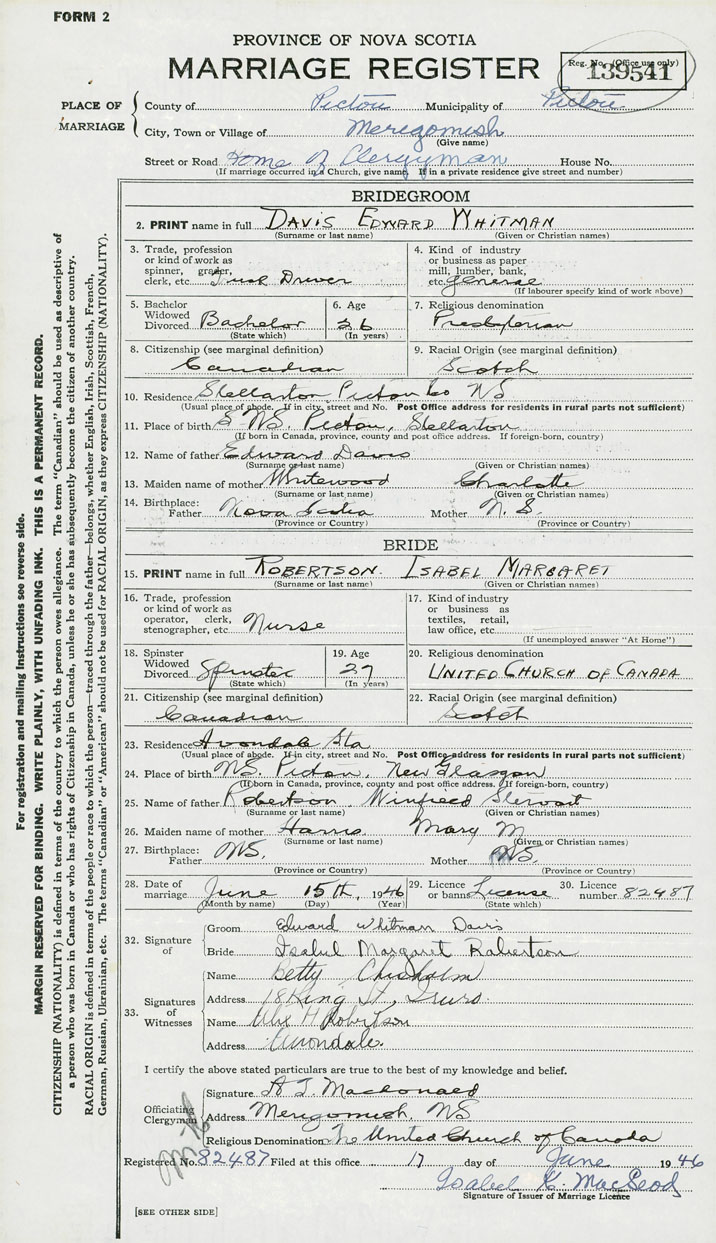 FORM 2
PROVINCE OF NOVA SCOTIA
MARRIAGE REGISTER
Reg. No. (Office use only)
139541
PLACE OF MARRIAGE
County of Pictou Municipality of Pictou
City, Town or Village of Merigomish
(Give name)
Street or Road Home of Clergyman House No.
(If marriage occurred in a Church, give name. If in a private residence give street and number)
BRIDEGROOM
2. PRINT name in full DAVIS EDWARD WHITMAN
(Surname or last name) (Given or Christian names)
3. Trade, profession or kind of work as spinner, grader, clerk, etc. Truck Driver
4. Kind of industry or business as paper mill, lumber, bank, etc. general
(If labourer specify kind of work above)
5. Bachelor Widowed Divorced Bachelor (State which)
6. Age 26 (In years)
7. Religious denomination Presbyterian
8. Citizenship (see marginal definition) Canadian
9. Racial Origin (see marginal definition) Scotch
10. Residence Stellarton Pictou Co NS
(Usual place of abode. If in city, street and No. Post Office address for residents in rural parts not sufficient)
11. Place of birth NS. Pictou, Stellarton
(If born in Canada, province, county and post office address. If foreign-born, country)
12. Name of father Edward Davis
(Surname or last name) (Given or Christian names)
13. Maiden name of mother Whitewood Charlotte
(Surname or last name) (Given or Christian names)
14. Birthplace: Father Nova Scotia Mother N. S.
(Province or Country) (Province or Country)
BRIDE
15. PRINT name in full ROBERTSON ISABEL MARGARET
(Surname or last name) (Given or Christian names)
16. Trade, profession or kind of work as operator, clerk, stenographer, etc. Nurse
17. Kind of industry or business as textiles, retail, law office, etc.
(If unemployed answer "At Home")
18. Spinster Widowed Divorced Spinster (State which)
19. Age 27 (In years)
20. Religious denomination UNITED CHURCH OF CANADA
21. Citizenship (see marginal definition) Canadian
22. Racial Origin (see marginal definition) Scotch
23. Residence Avondale Sta
(Usual place of abode. If in city, street and No. Post Office address for residents in rural parts not sufficient)
24. Place of birth NS. Pictou, New Glasgow
(If born in Canada, province, county and post office address. If foreign-born, country)
25. Name of father Robertson Winfred Stewart
(Surname or last name) (Given or Christian names)
26. Maiden name of mother Harris Mary M
(Surname or last name) (Given or Christian names)
27. Birthplace: Father NS. Mother NS.
(Province or Country) (Province or Country)
28. Date of marriage June 15th, 1946
(Month by name) (Day) (Year)
29. Licence or banns License (State which)
30. Licence number 82487
32. Signature of
Groom Edward Whitman Davis
Bride Isabel Margaret Robertson
33. Signatures of Witnesses
Name Betty Chisholm
Address 18 King St., Truro.
Name Alex H Robertson
Address Avondale.
I certify the above stated particulars are true to the best of my knowledge and belief.
Officiating Clergyman
Signature A. J. Macdonald
Address Merigomish, NS
Religious Denomination The United Church of Canada
Registered No. 82487 Filed at this office 17 day of June 1946
Isabel K. MacLeod
Signature of Issuer of Marriage Licence
[SEE OTHER SIDE]
For registration and mailing instructions see reverse side.
MARGIN RESERVED FOR BINDING. WRITE PLAINLY, WITH UNFADING INK. THIS IS A PERMANENT RECORD.
CITIZENSHIP (NATIONALITY) is defined in terms of the country to which the person owes allegiance. The term "Canadian" should be used as descriptive of
a person who was born in Canada or who has rights of Citizenship in Canada, unless he or she has subsequently become the citizen of another country.
RACIAL ORIGIN is defined in terms of the people or race to which the person—traced through the father—belongs, whether English, Irish, Scottish, French,
German, Russian, Ukrainian, etc. The terms "Canadian" or "American" should not be used for RACIAL ORIGIN, as they express CITIZENSHIP (NATIONALITY).